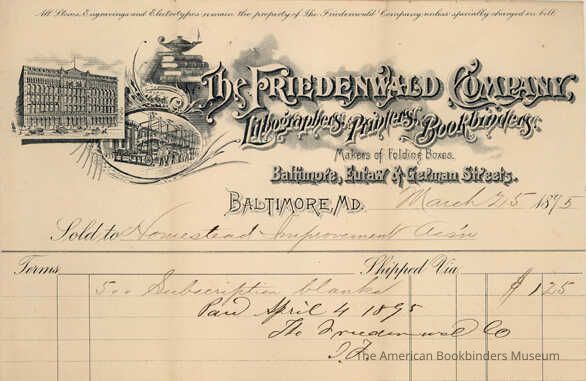 All Stones, Engravings and Electrotypes remain the property of The Friedenwald Company, unless specially charged on bill.
The Friedenwald Company,
Lithographers, Printers, Bookbinders.
Makers of Folding Boxes.
Baltimore, Eutaw & German Streets.
Baltimore, Md. March 25 1895
Sold to Homestead Improvement Ass'n
Terms Shipped Via
500 Subscription blanks $ 1.25
Paid April 4 1895
The Friedenwald Co
The American Bookbinders Museum